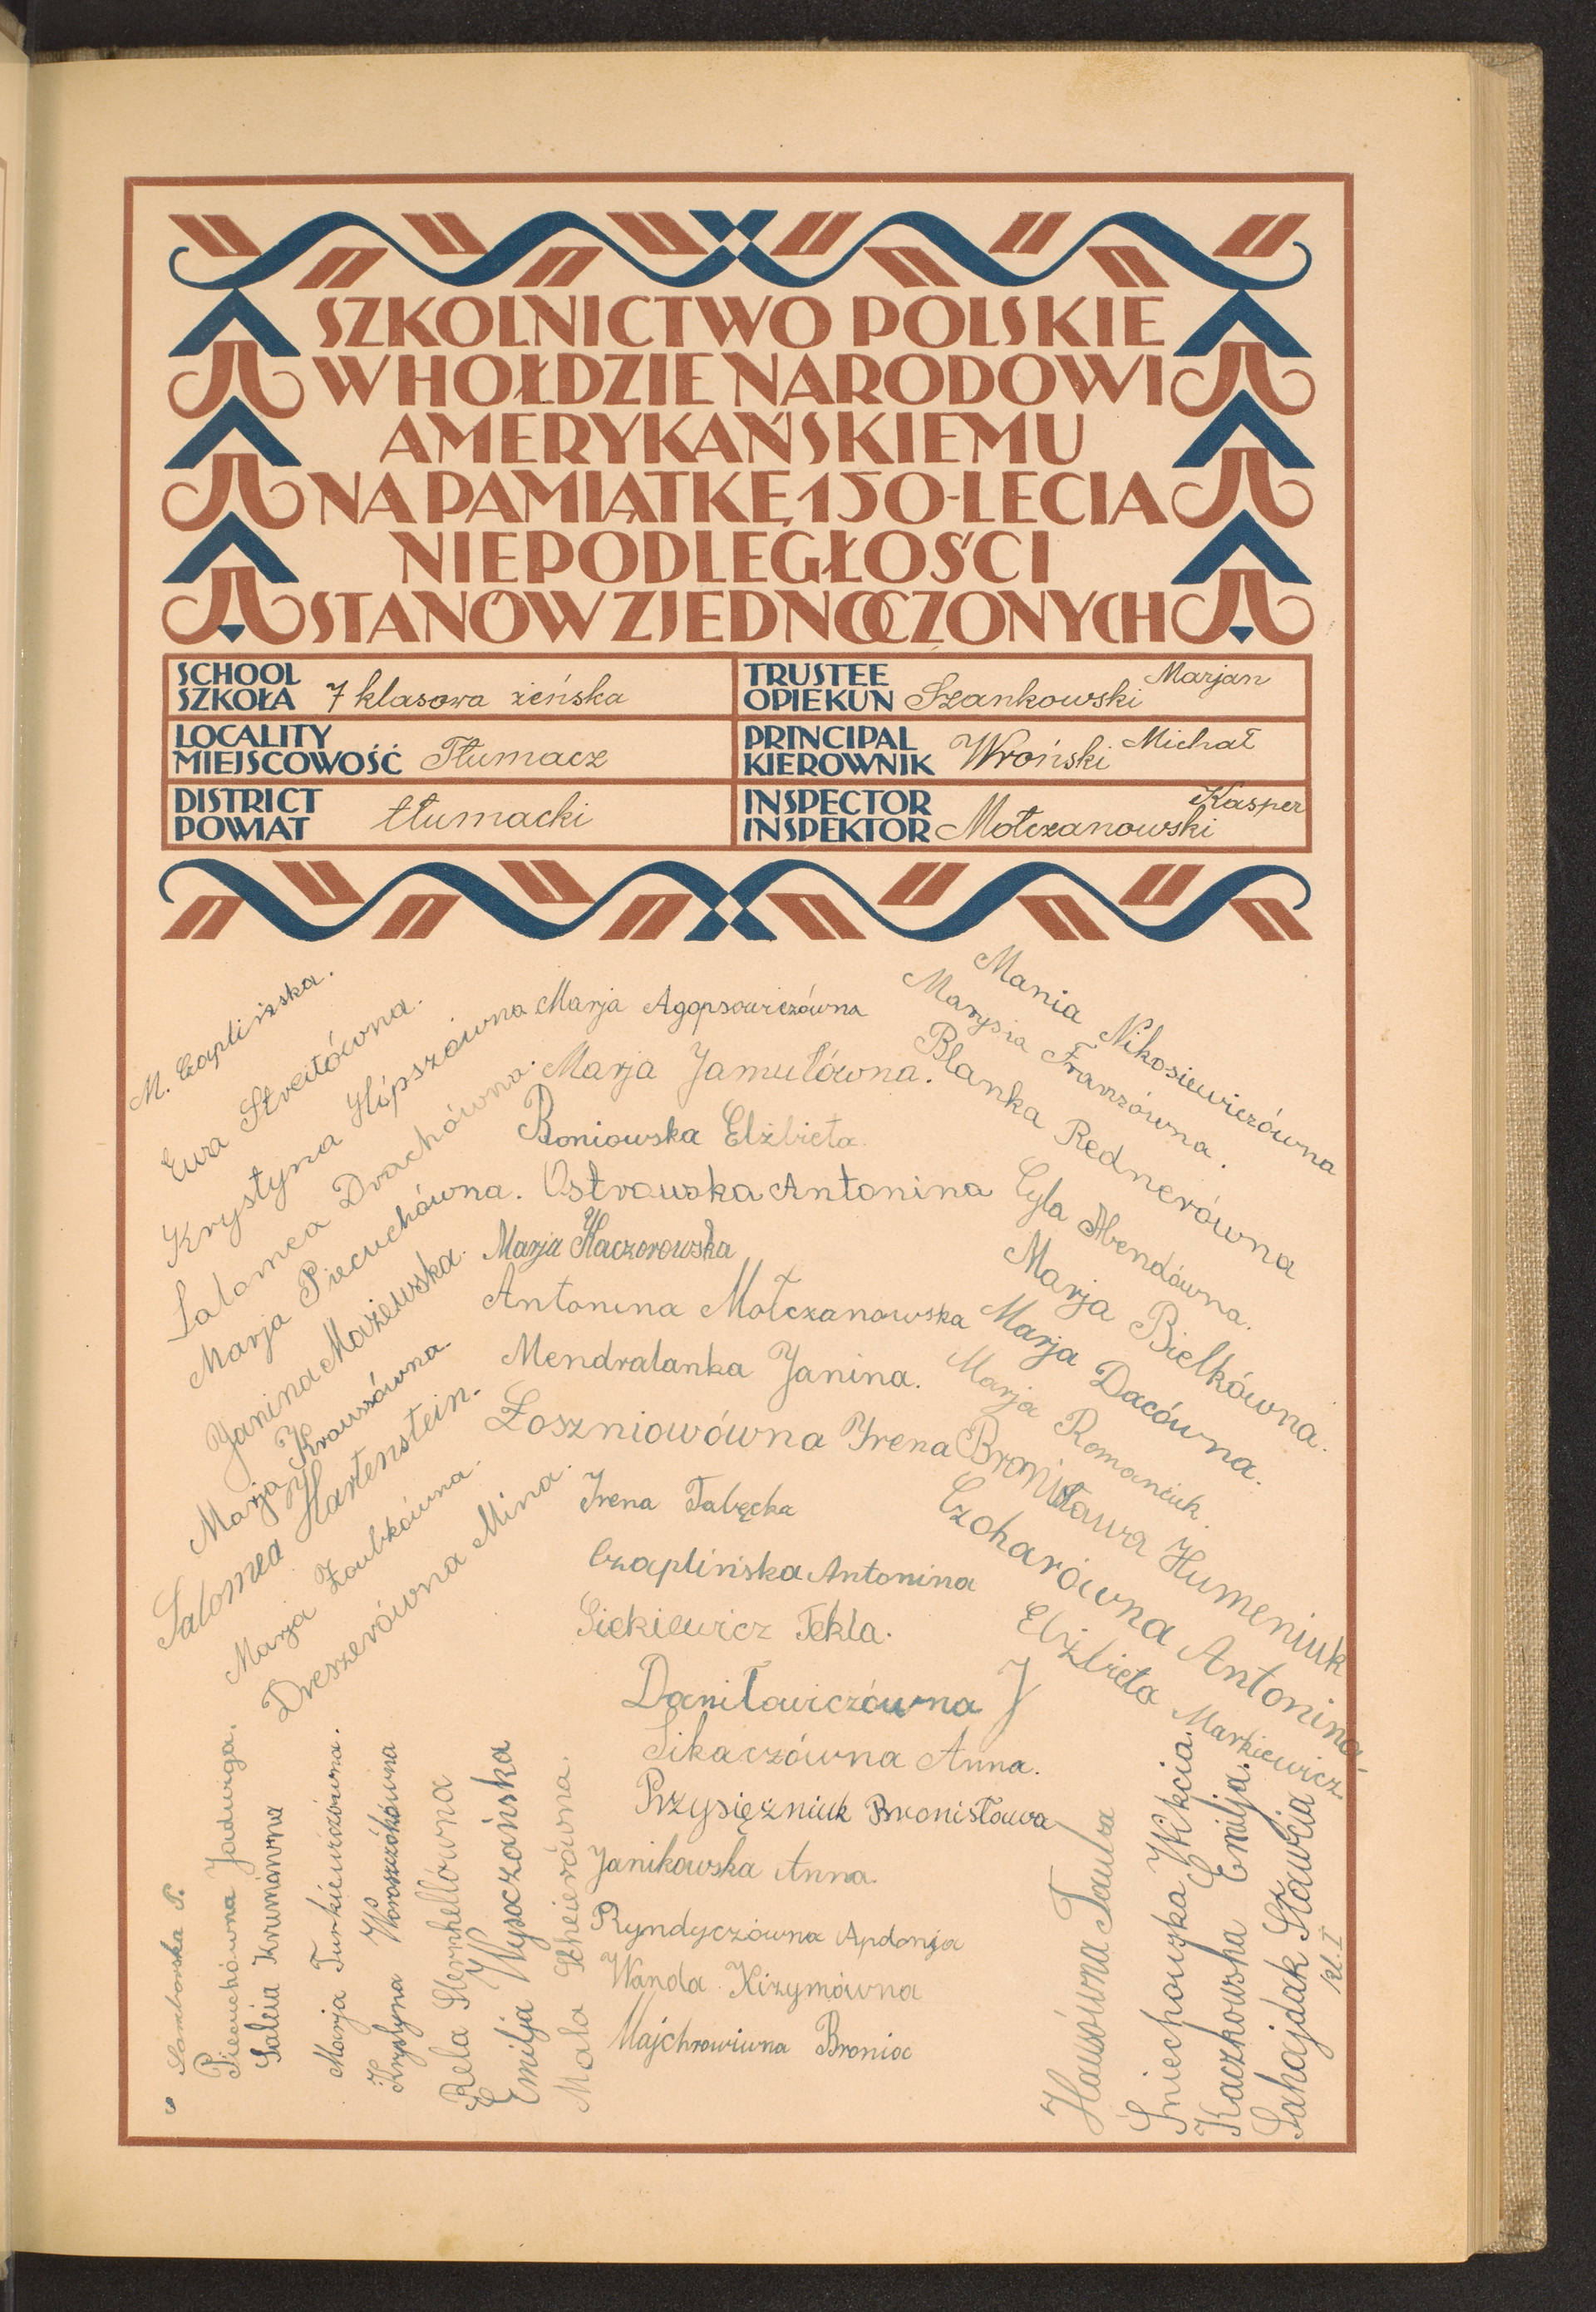 SZKOLNICTWO POLSKIE
W HOŁDZIE NARODOWI
AMERYKAŃSKIEMU
NA PAMIĄTKĘ 150-LECIA
NIEPODLEGŁOŚCI
STANÓW ZJEDNOCZONYCH
SCHOOL
SZKOŁA 7 klasowa żeńska
TRUSTEE
OPIEKUN Szankowski Marjan
LOCALITY
MIEJSCOWOŚĆ Tłumacz
PRINCIPAL
KIEROWNIK Wroński Michał
DISTRICT
POWIAT tłumacki
INSPECTOR
INSPEKTOR Mołczanowski Kasper
M. Czaplińska.
Ewa Streitówna.
Krystyna Hipszówna
Salomea Drachówna.
Marja Piecuchówna.
Janina Mażewska.
Marja Kraussówna
Salomea Hartenstein.
Marja Zoubkówna.
Dreszerówna Mina.
Marja Agopsowiczówna
Marja Jamułówna.
Roniowska Elżbieta.
Ostrowska Antonina
Marja Kaczorowska
Antonina Mołczanowska
Mendralanka Janina.
Łoszniowówna Irena
Irena Tabęcka
Czaplińska Antonina
Siekiewicz Tekla.
Daniłowiczówna J
Sikaczówna Anna.
Przysiężniuk Bronisława
Janikowska Anna.
Ryndyczówna Apdonja
Wanda Kizymówna
Majchrowiwna Bronioc
Mania Nikosiewiczówna
Marysia Franzówna.
Blanka Rednerówna
Cyla Abendówna.
Marja Bielkówna.
Marja Dacówna.
Marja Romaniuk.
Bronisława Humeniuk
Czoharówna Antonina
Elżbieta Markiewicz
Samborska P.
Piecuchówna Jadwiga.
Salcia Krumówna
Marja Turkiewiczówna.
Krystyna Woroszczókówna
Rela Sternhellówna
Emilja Wysoczańska
Mala Scheierówna.
Hausówna Taube
Śniechowska Wikcia.
Kaczkowska Emilja.
Sahajdak Sławcia
kl. I